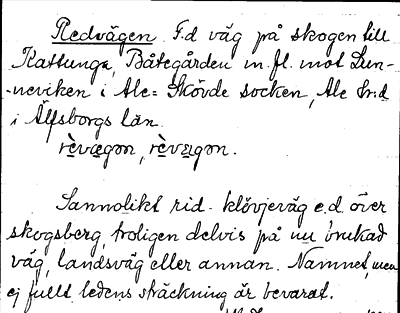 Redvägen. F.d väg på skogen till
Kattunga, Båtegården m.fl. mot Lun-
-neviken i Ale=Skövde socken, Ale hrd
i Älfsborgs län.
rèvægon, rèvægon.
Sannolikt rid- klövjeväg e.d. över
skogsberg, troligen delvis på nu brukad
väg, landsväg eller annan. Namnet, men
ej fullt ledens sträckning är bevarat.